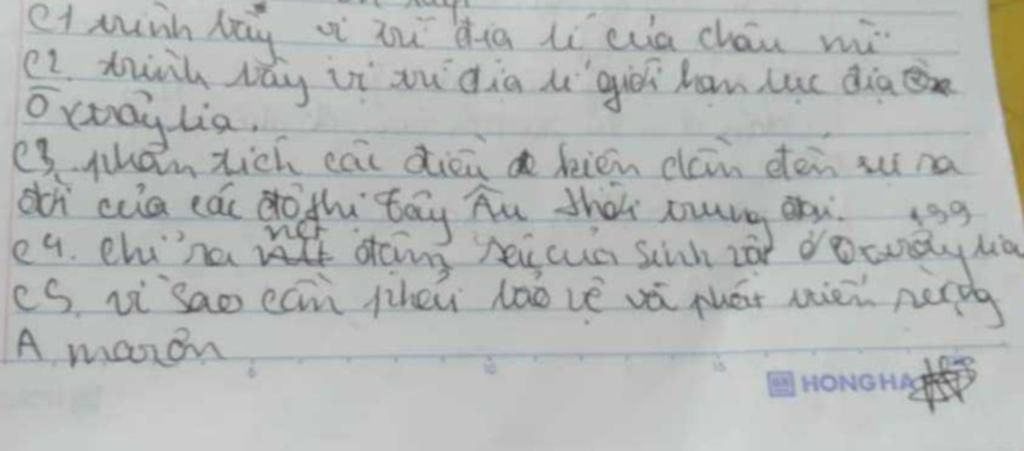 C1 trình bày vị trí địa lí của châu mĩ
C2. trình bày vị trí địa lí giới hạn lục địa
Ôxtrâylia.
C3. phân tích các điều kiện dẫn đến sự ra
đời của các đô thị Tây Âu thời trung đại. 139
C4. Chỉ ra nét đặc sắc của sinh vật ở Ôxtrâylia
C5. vì sao cần phải bảo vệ và phát triển rừng
A mazôn
5 10 15
HONG HA